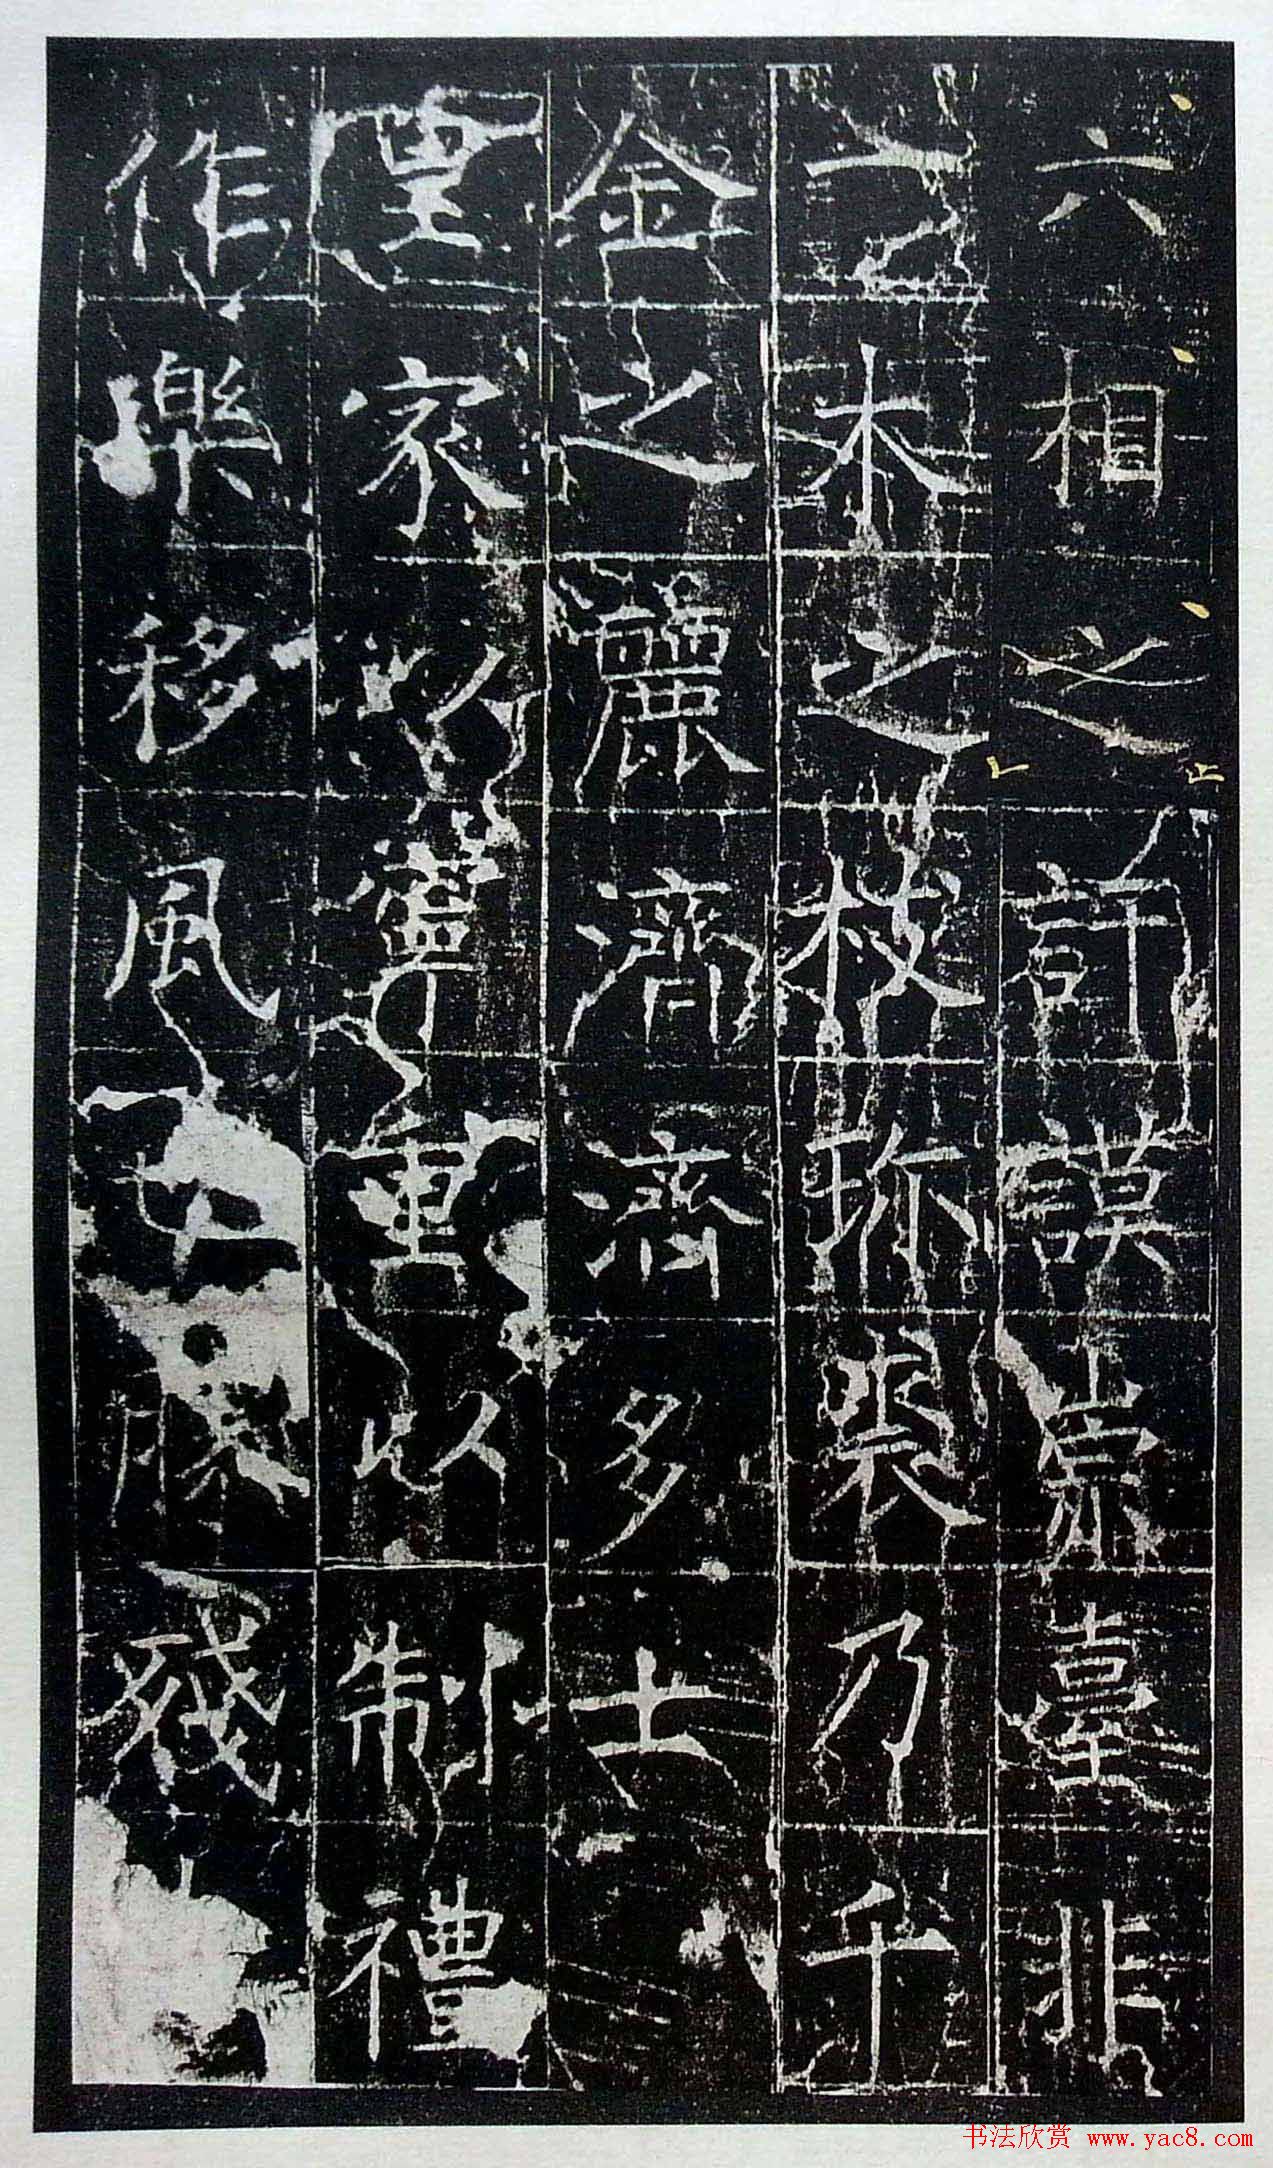 六相之訏謨崇臺非
一木之枝珎裘乃千
金之麗濟濟多士
皇家以寧重以制禮
作樂移風勝殘
书法欣赏 www.yac8.com